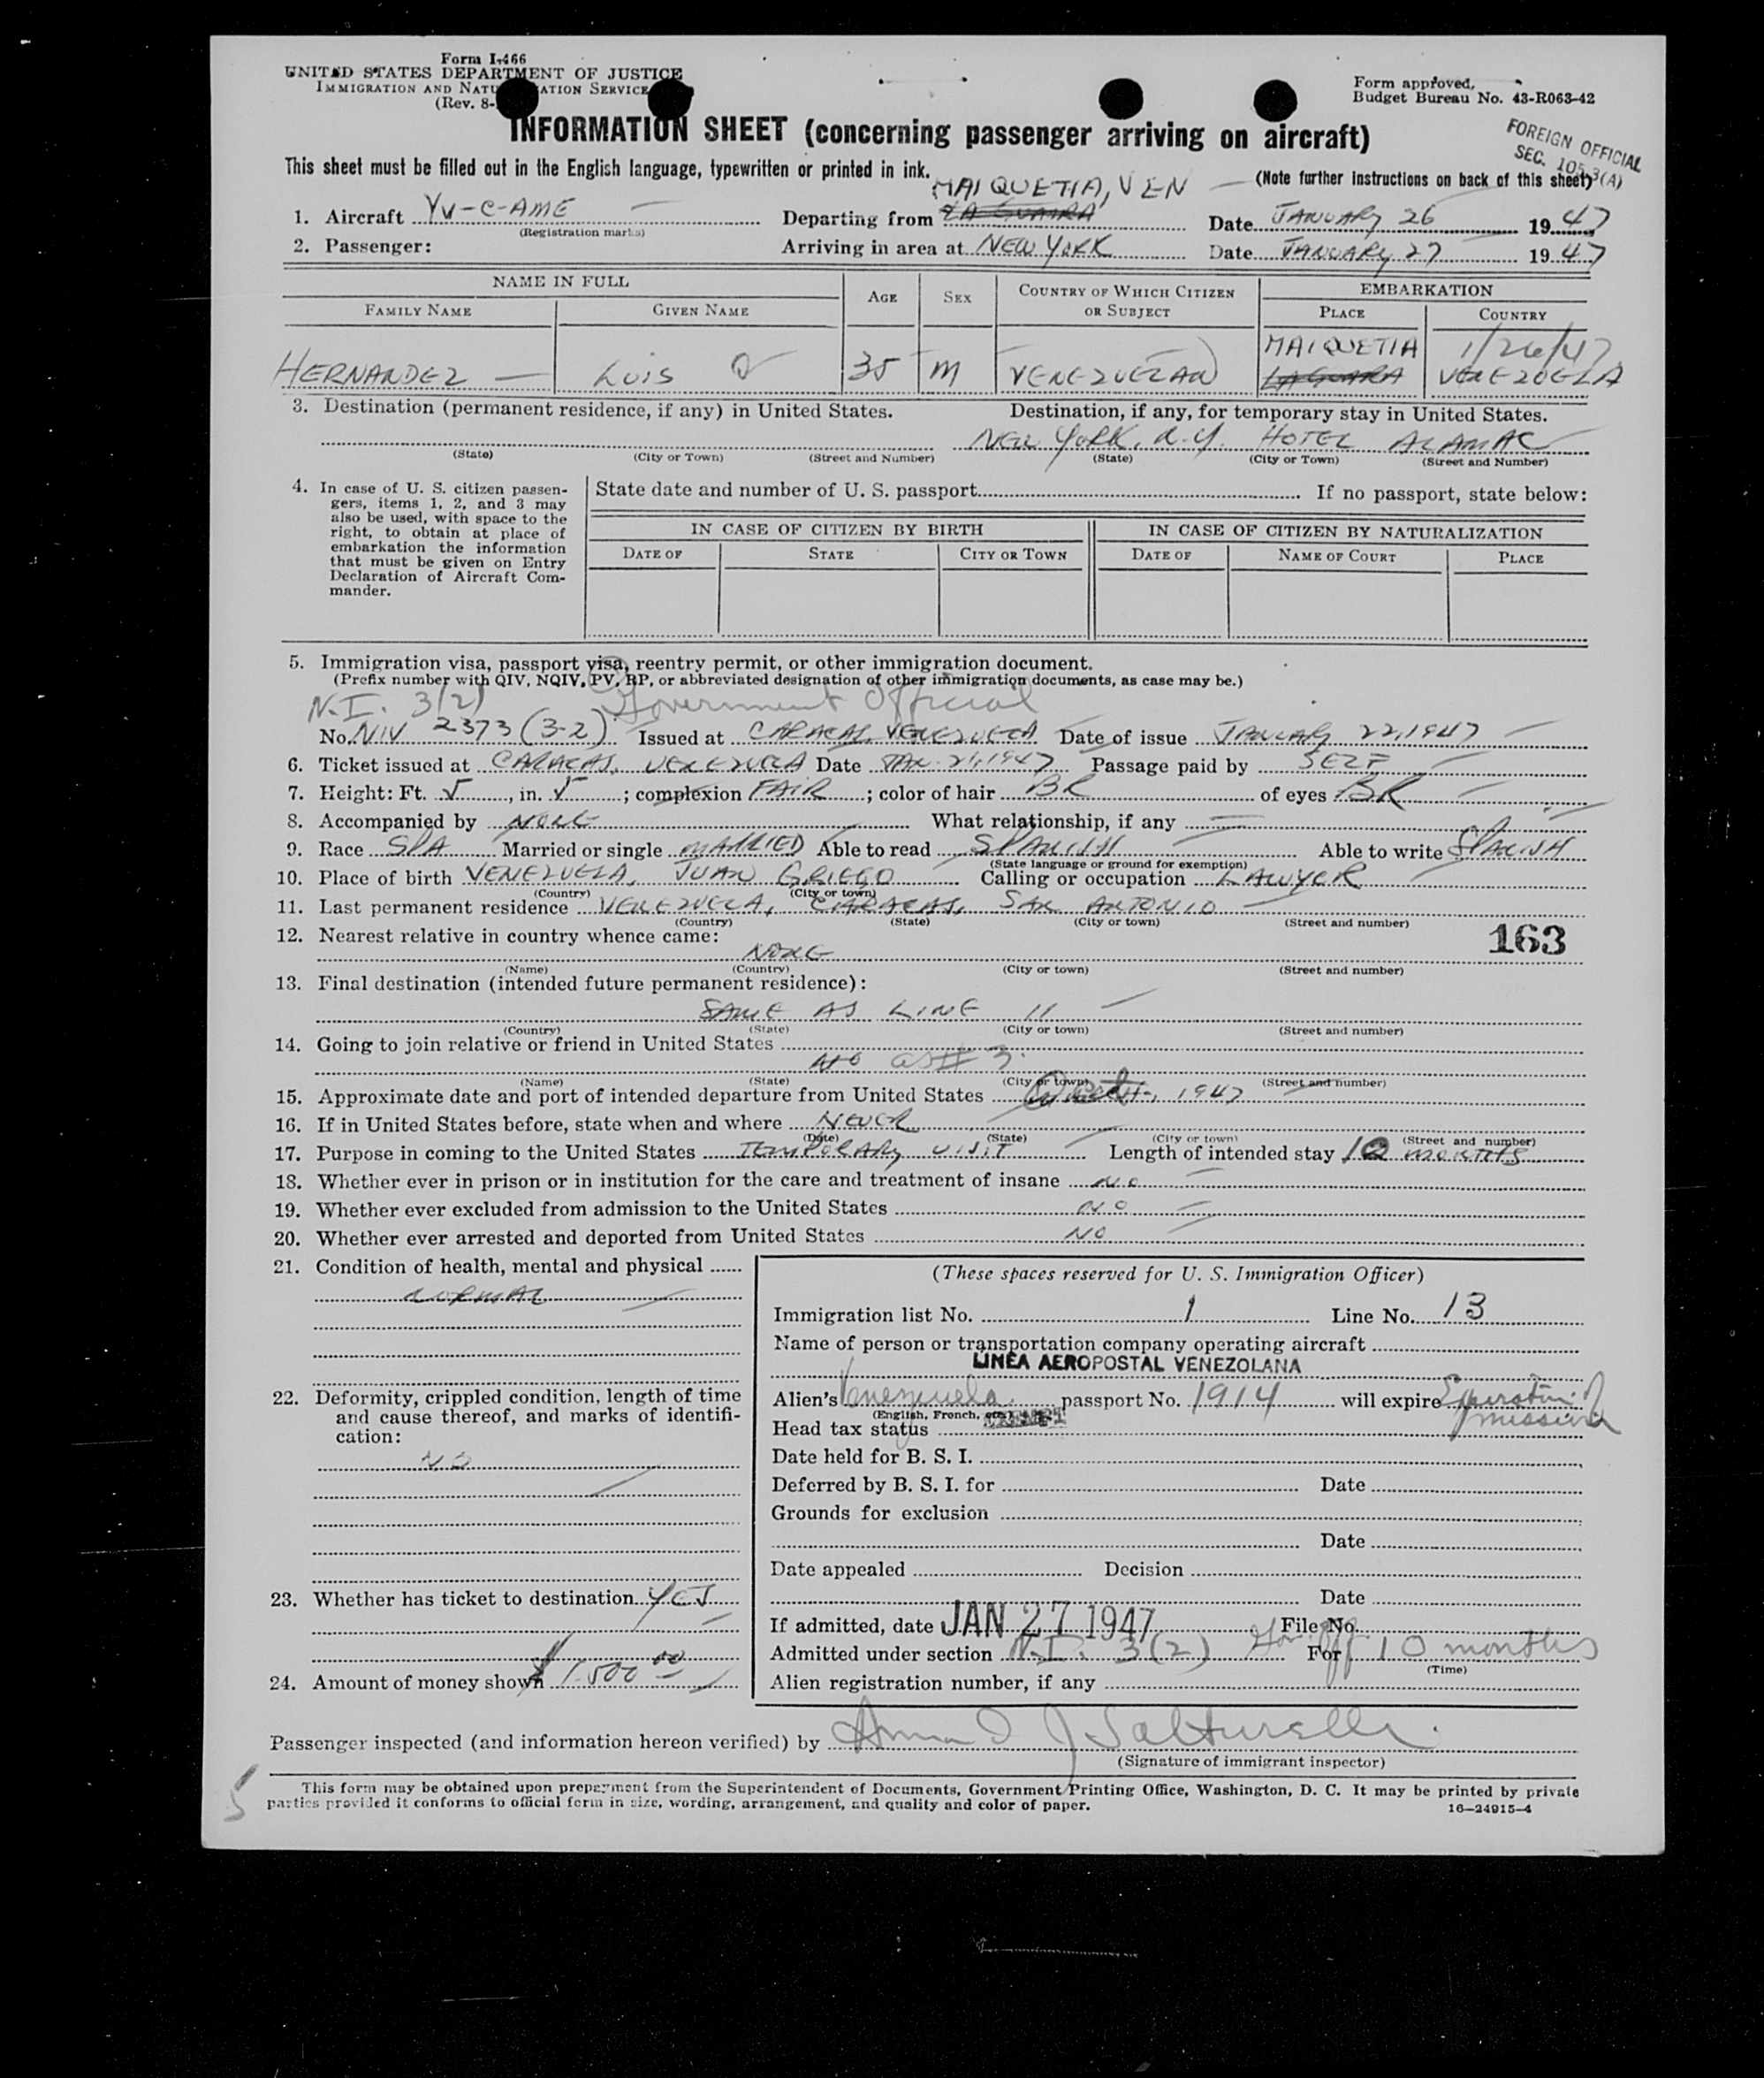 Form I-466
UNITED STATES DEPARTMENT OF JUSTICE
IMMIGRATION AND NATU ATION SERVICE
(Rev. 8-
Form approved,
Budget Bureau No. 43-R063-42
INFORMATION SHEET (concerning passenger arriving on aircraft)
FOREIGN OFFICIAL
SEC. 105.3(A)
This sheet must be filled out in the English language, typewritten or printed in ink.
(Note further instructions on back of this sheet)
MAIQUETIA, VEN
1. Aircraft YV-C-AME Departing from LA GUAIRA Date JANUARY 26 1947
(Registration marks)
2. Passenger: Arriving in area at NEW YORK Date JANUARY 27 1947
NAME IN FULL AGE SEX COUNTRY OF WHICH CITIZEN OR SUBJECT EMBARKATION
FAMILY NAME GIVEN NAME PLACE COUNTRY
MAIQUETIA 1/26/47
HERNANDEZ LUIS 35 M VENEZUELAN LAGUARA VENEZUELA
3. Destination (permanent residence, if any) in United States. Destination, if any, for temporary stay in United States.
NEW YORK, N.Y. HOTEL ALAMAC
(State) (City or Town) (Street and Number) (State) (City or Town) (Street and Number)
4. In case of U. S. citizen passen-
gers, items 1, 2, and 3 may
also be used, with space to the
right, to obtain at place of
embarkation the information
that must be given on Entry
Declaration of Aircraft Com-
mander.
State date and number of U. S. passport If no passport, state below:
IN CASE OF CITIZEN BY BIRTH IN CASE OF CITIZEN BY NATURALIZATION
DATE OF STATE CITY OR TOWN DATE OF NAME OF COURT PLACE
5. Immigration visa, passport visa, reentry permit, or other immigration document.
(Prefix number with QIV, NQIV, PV, RP, or abbreviated designation of other immigration documents, as case may be.)
N.I. 3(2) Government Official
No. NIV 2373 (3-2) Issued at CARACAS, VENEZUELA Date of issue JANUARY 22, 1947
6. Ticket issued at CARACAS, VENEZUELA Date JAN. 21, 1947 Passage paid by SELF
7. Height: Ft. 5, in. 5; complexion FAIR; color of hair BR of eyes BR
8. Accompanied by NONE What relationship, if any
9. Race SPA Married or single MARRIED Able to read SPANISH Able to write SPANISH
(State language or ground for exemption)
10. Place of birth VENEZUELA, JUAN GRIEGO Calling or occupation LAWYER
(Country) (City or town)
11. Last permanent residence VENEZUELA, CARACAS, SAN ANTONIO
(Country) (State) (City or town) (Street and number)
12. Nearest relative in country whence came: 163
NONE
(Name) (Country) (City or town) (Street and number)
13. Final destination (intended future permanent residence):
SAME AS LINE 11
(Country) (State) (City or town) (Street and number)
14. Going to join relative or friend in United States
NO as # 3.
(Name) (State) (City or town) (Street and number)
15. Approximate date and port of intended departure from United States 1947
16. If in United States before, state when and where NEVER
(Date) (State) (City or town) (Street and number)
17. Purpose in coming to the United States TEMPORARY VISIT Length of intended stay 10 MONTHS
18. Whether ever in prison or in institution for the care and treatment of insane NO
19. Whether ever excluded from admission to the United States NO
20. Whether ever arrested and deported from United States NO
21. Condition of health, mental and physical
NORMAL
22. Deformity, crippled condition, length of time
and cause thereof, and marks of identifi-
cation:
NO
23. Whether has ticket to destination YES
24. Amount of money shown $1.500 00
(These spaces reserved for U. S. Immigration Officer)
Immigration list No. 1 Line No. 13
Name of person or transportation company operating aircraft
LINEA AEROPOSTAL VENEZOLANA
Alien's Venezuela passport No. 1914 will expire mission
(English, French, etc.)
Head tax status
Date held for B. S. I.
Deferred by B. S. I. for Date
Grounds for exclusion
Date
Date appealed Decision
Date
If admitted, date JAN 27 1947 File No.
Admitted under section N.I. 3(2) Gov. Off. For 10 months
(Time)
Alien registration number, if any
Passenger inspected (and information hereon verified) by
(Signature of immigrant inspector)
This form may be obtained upon prepayment from the Superintendent of Documents, Government Printing Office, Washington, D. C. It may be printed by private
parties provided it conforms to official form in size, wording, arrangement, and quality and color of paper.
16—24915-4